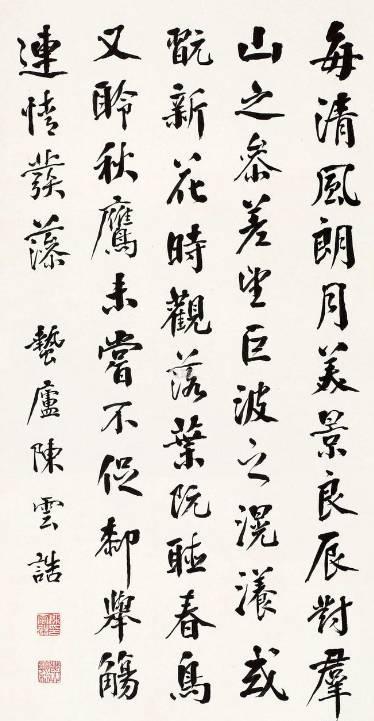 每清風朗月美景良辰對羣
山之參差望巨波之滉瀁或
翫新花時觀落葉既聽春鳥
又聆秋鷹未嘗不促膝舉觴
連情發藻 蟄廬陳雲誥